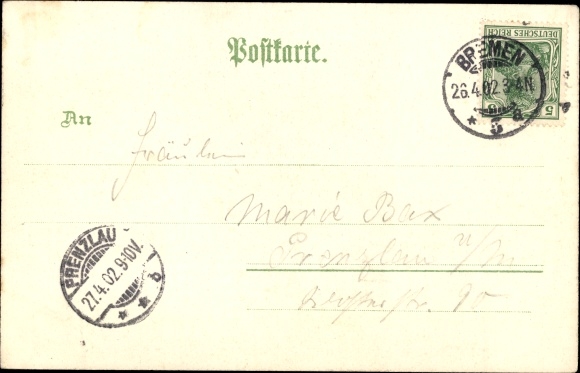 Postkarte.
DEUTSCHES REICH
5
BREMEN
26.4.02.3-4N.
* 5 a
An
Fräulein
Marie Bax
Prenzlau u/m
PRENZLAU
27.4.02.9-10V.
* * b